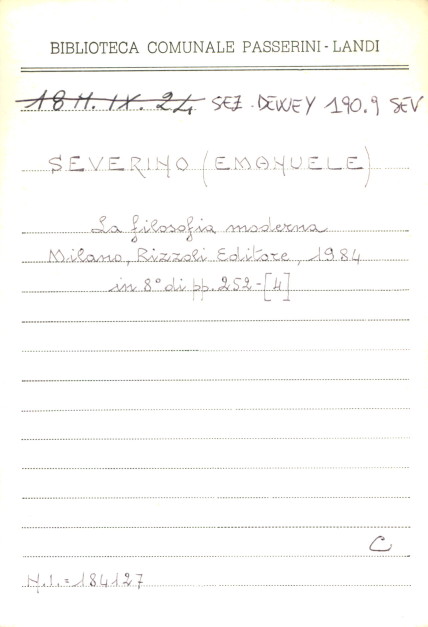 BIBLIOTECA COMUNALE PASSERINI-LANDI
18 H. IX. 24 SEZ. DEWEY 190.9 SEV
SEVERINO (EMANUELE)
La filosofia moderna
Milano, Rizzoli Editore, 1984
in 8° di pp. 252-[4]
C
N.I.=184127